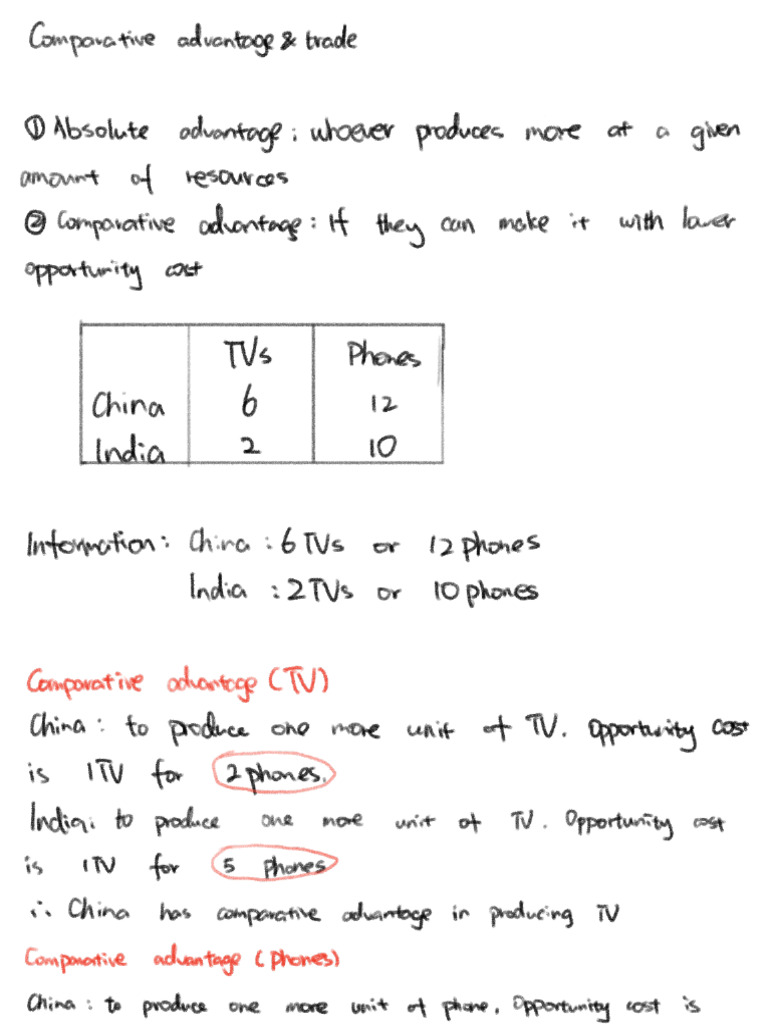 Comparative advantage & trade
① Absolute advantage : whoever produces more at a given
amount of resources
② Comparative advantage : If they can make it with lower
opportunity cost
TVs Phones
China 6 12
India 2 10
Information : China : 6 TVs or 12 phones
India : 2 TVs or 10 phones
Comparative advantage (TV)
China : to produce one more unit of TV. Opportunity cost
is 1TV for 2 phones.
India : to produce one more unit of TV. Opportunity cost
is 1TV for 5 phones
∴ China has comparative advantage in producing TV
Comparative advantage (phones)
China : to produce one more unit of phone, Opportunity cost is